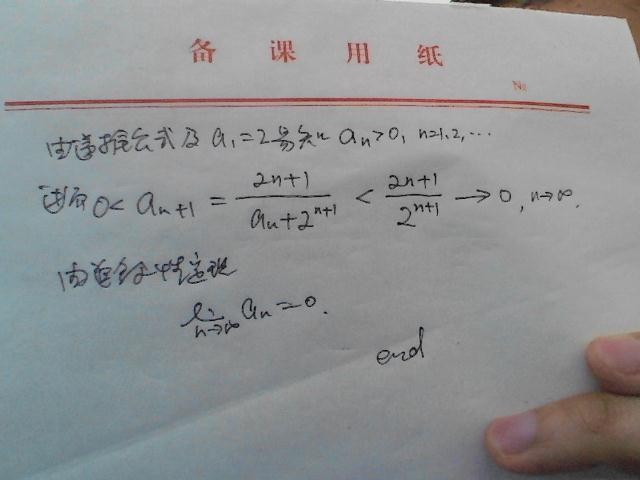 备课用纸
№
由递推公式及 a₁=2 易知 aₙ>0, n=1,2,…
进而 0< aₙ₊₁ = \frac{2n+1}{aₙ+2^{n+1}} < \frac{2n+1}{2^{n+1}} → 0, n→∞.
由迫敛性定理
lim_{n→∞} aₙ=0.
end